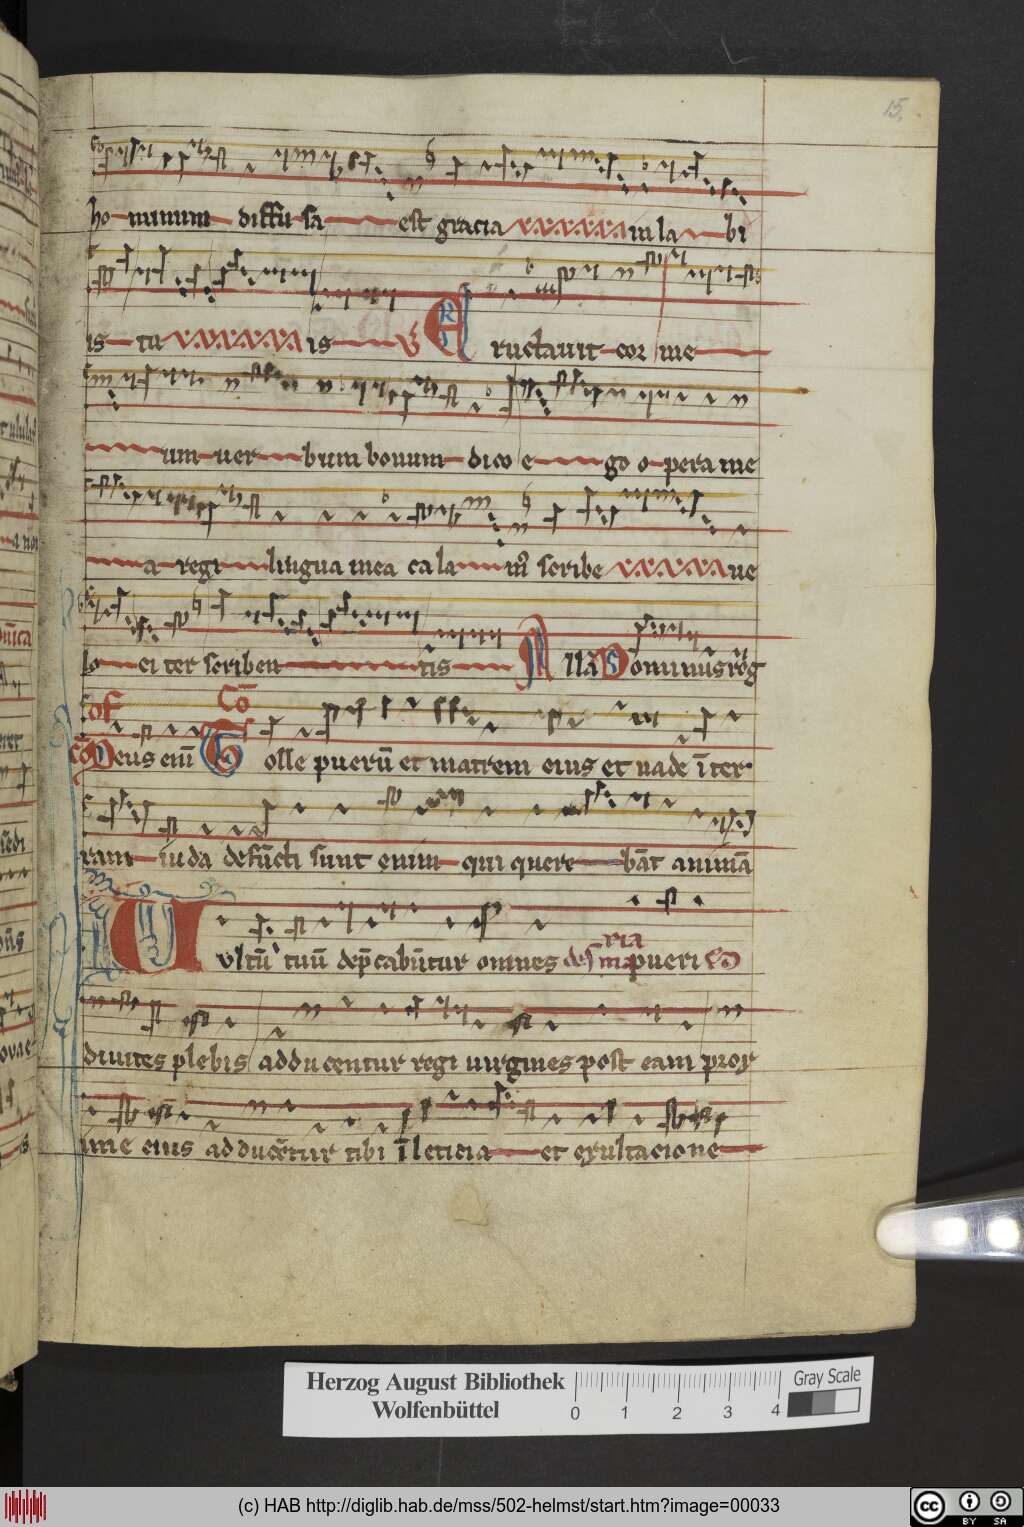 15.
ho minum diffu sa est gracia in la bi
is tu is V Eructauit cor me
um uer bum bonum dico e go o pera me
a regi lingua mea ca la m9 scribe ue
lo ci ter scriben tis Allā Dominus reg
of Cō
cō Deus eni Tolle puerū et matrem eius et uade ī ter
ram iuda defūcti sunt enim qui quere bāt animā
Vultū tuū dep̄cabūtur omnes
diuites plebis adducentur regi uirgines post eam prox
ime eius adducētur tibi ī leticia et exultacione
Herzog August Bibliothek
Wolfenbüttel
0 1 2 3 4
Gray Scale
(c) HAB http://diglib.hab.de/mss/502-helmst/start.htm?image=00033
cc BY SA